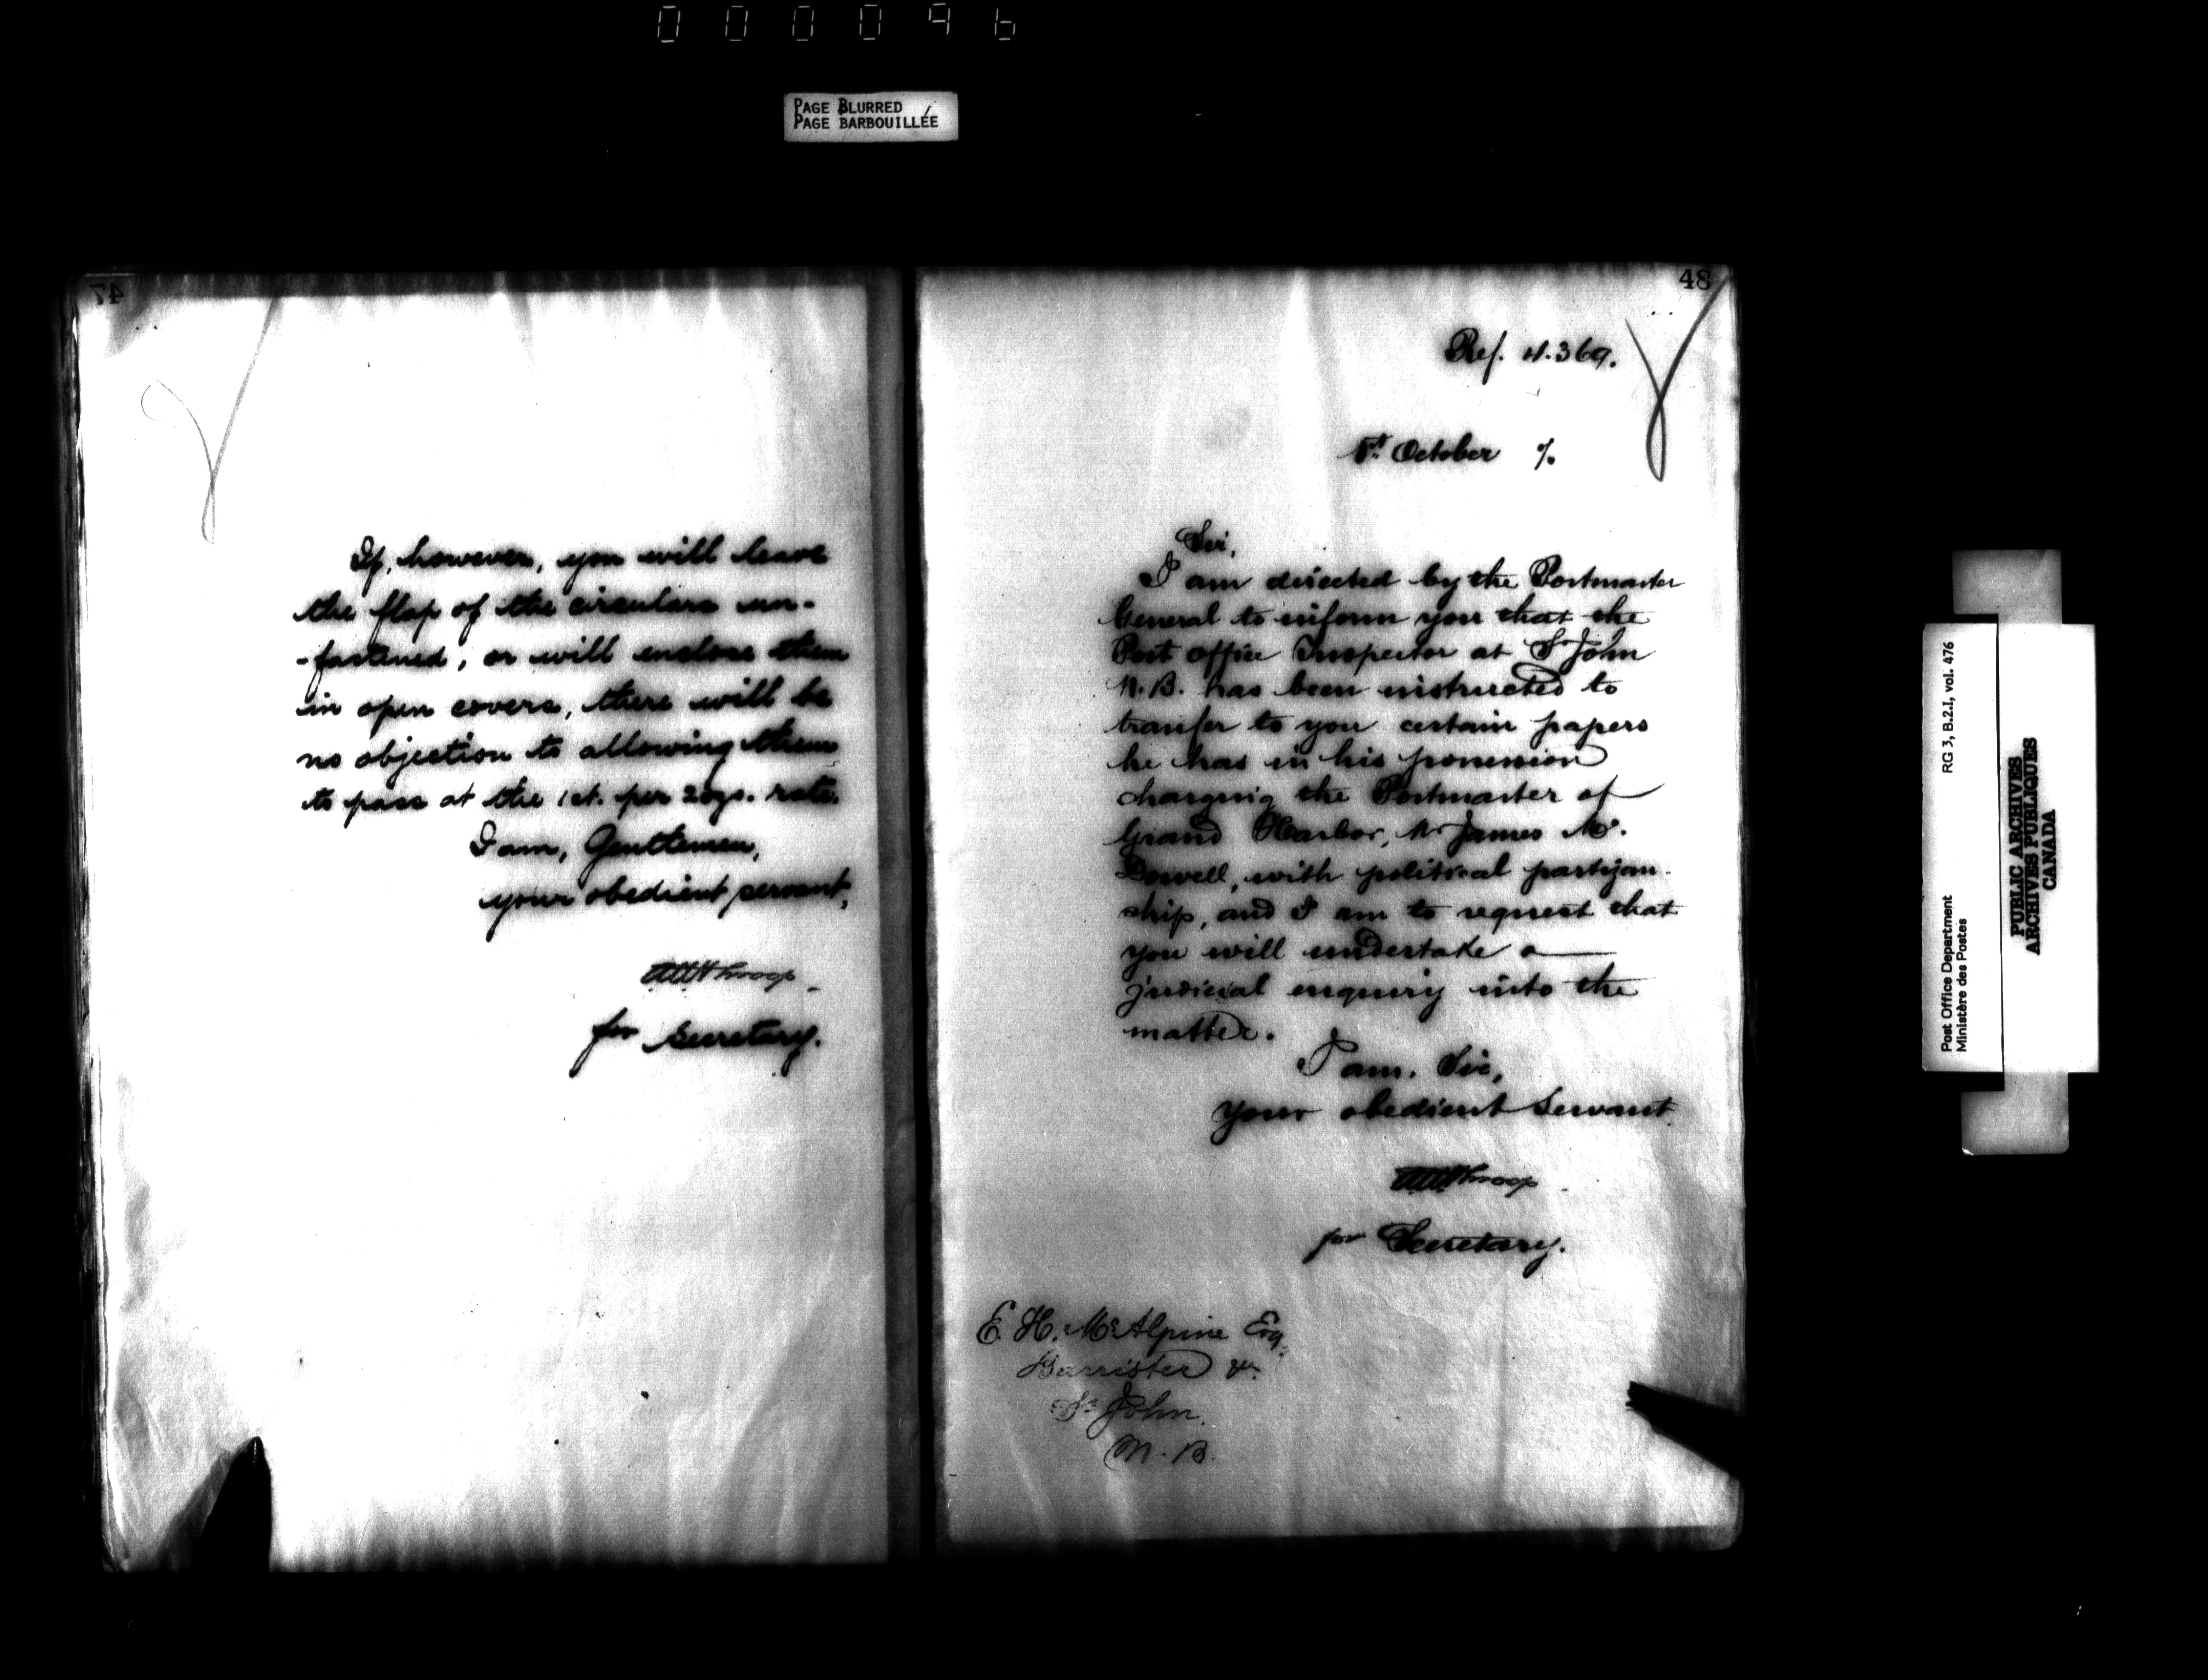 000096
PAGE BLURRED
PAGE BARBOUILLÉE
47
If, however, you will leave
the flap of the circulars un-
-fastened, or will enclose them
in open covers, there will be
no objection to allowing them
to pass at the 1ct. per 2 ozs. rate.
I am, Gentlemen,
your obedient servant,
Throop
for Secretary.
48
Ref. 4.369.
October
Sir,
I am directed by the Postmaster
General to inform you that the
Post office Inspector at St John
N.B. has been instructed to
tranfer to you certain papers
he has in his possession
charging the Postmaster of
Grand Harbor, Mr James Mc.
Dowell, with political partizan-
ship, and I am to request that
you will undertake a
judicial enquiry into the
matter.
I am. Sir,
Your obedient Servant
Throop
for Secretary.
E. H. McAlpine Esq.
Barrister &c.
St John.
N. B.
Post Office Department
Ministère des Postes
RG 3, B.2.I, vol. 476
PUBLIC ARCHIVES
ARCHIVES PUBLIQUES
CANADA